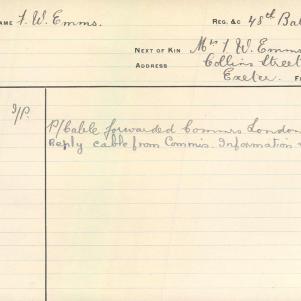 NAME F. W. Emms. REG. &C 48th Bat
NEXT OF KIN Mrs F. W. Emms
ADDRESS Collins Street
Exeter.
I/P. P/Cable forwarded Commrs London
Reply cable from Commis. Information